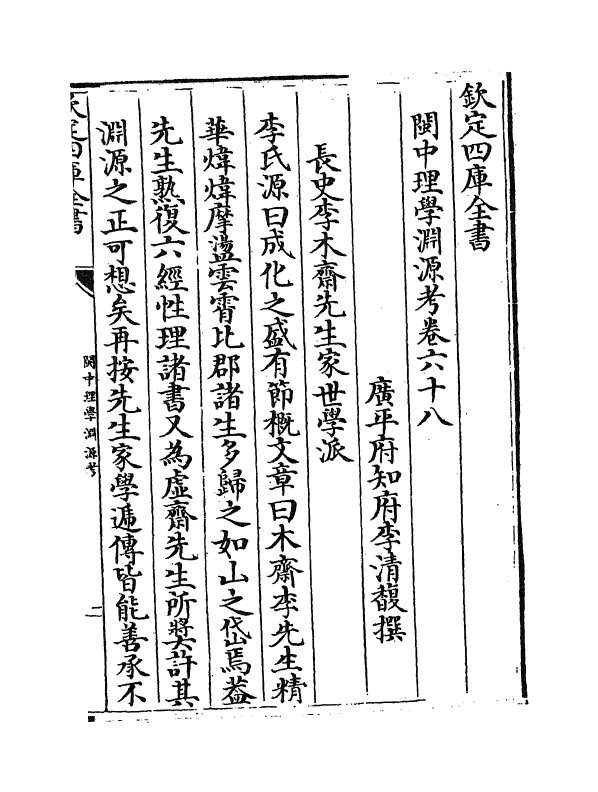 欽定四庫全書
閩中理學淵源考卷六十八
廣平府知府李清馥撰
長史李木齋先生家世學派
李氏源曰成化之盛有節概文章曰木齋李先生精
華煒煒摩盪雲霄比郡諸生多歸之如山之岱焉葢
先生熟復六經性理諸書又為虛齋先生所奬許其
淵源之正可想矣再按先生家學遞傳皆能善承不
欽定四庫全書
閩中理學淵源考